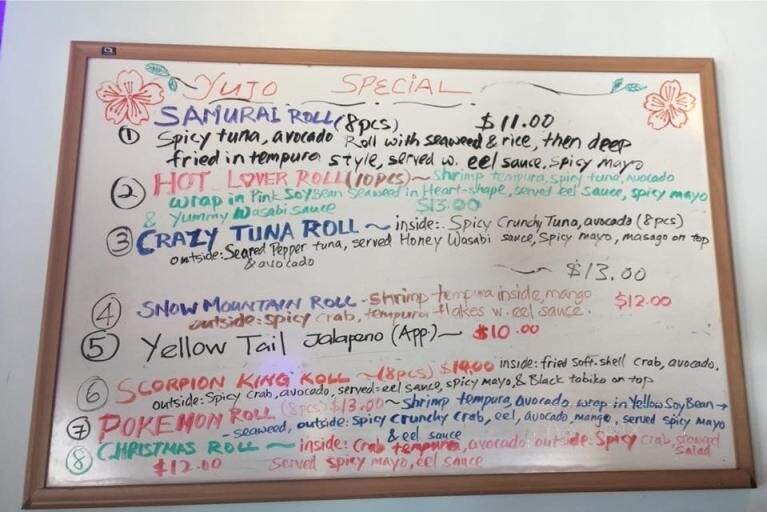 YUJO SPECIAL
SAMURAI ROLL (8pcs) $11.00
① Spicy tuna, avocado Roll with seaweed & rice, then deep
fried in tempura style, served w. eel sauce, spicy mayo
② HOT LOVER ROLL (10pcs) ~ shrimp tempura, spicy tuna, avocado
wrap in Pink SoyBean Seaweed in Heart-shape, served eel sauce, spicy mayo
& Yummy Wasabi sauce $13.00
③ CRAZY TUNA ROLL ~ inside: Spicy Crunchy Tuna, avocado (8pcs)
outside: Seared Pepper tuna, served Honey Wasabi sauce, Spicy mayo, masago on top
& avocado
~ $13.00
④ SNOW MOUNTAIN ROLL - shrimp tempura inside, mango $12.00
outside: spicy crab, tempura flakes w. eel sauce
⑤ Yellow Tail Jalapeno (App.) ~ $10.00
⑥ SCORPION KING ROLL ~ (8pcs) inside: fried soft-shell crab, avocado,
outside: Spicy crab, avocado, served: eel sauce, spicy mayo, & Black tobiko on top
⑦ POKEMON ROLL (8pcs) $13.00 ~ shrimp tempura, Avocado, wrap in Yellow SoyBean →
- seaweed, outside: spicy crunchy crab, eel, avocado, mango, served spicy mayo
& eel sauce
⑧ CHRISTMAS ROLL ~ inside: Crab tempura, avocado outside: Spicy crab, seaweed
Salad
$12.00 Served spicy mayo, eel sauce